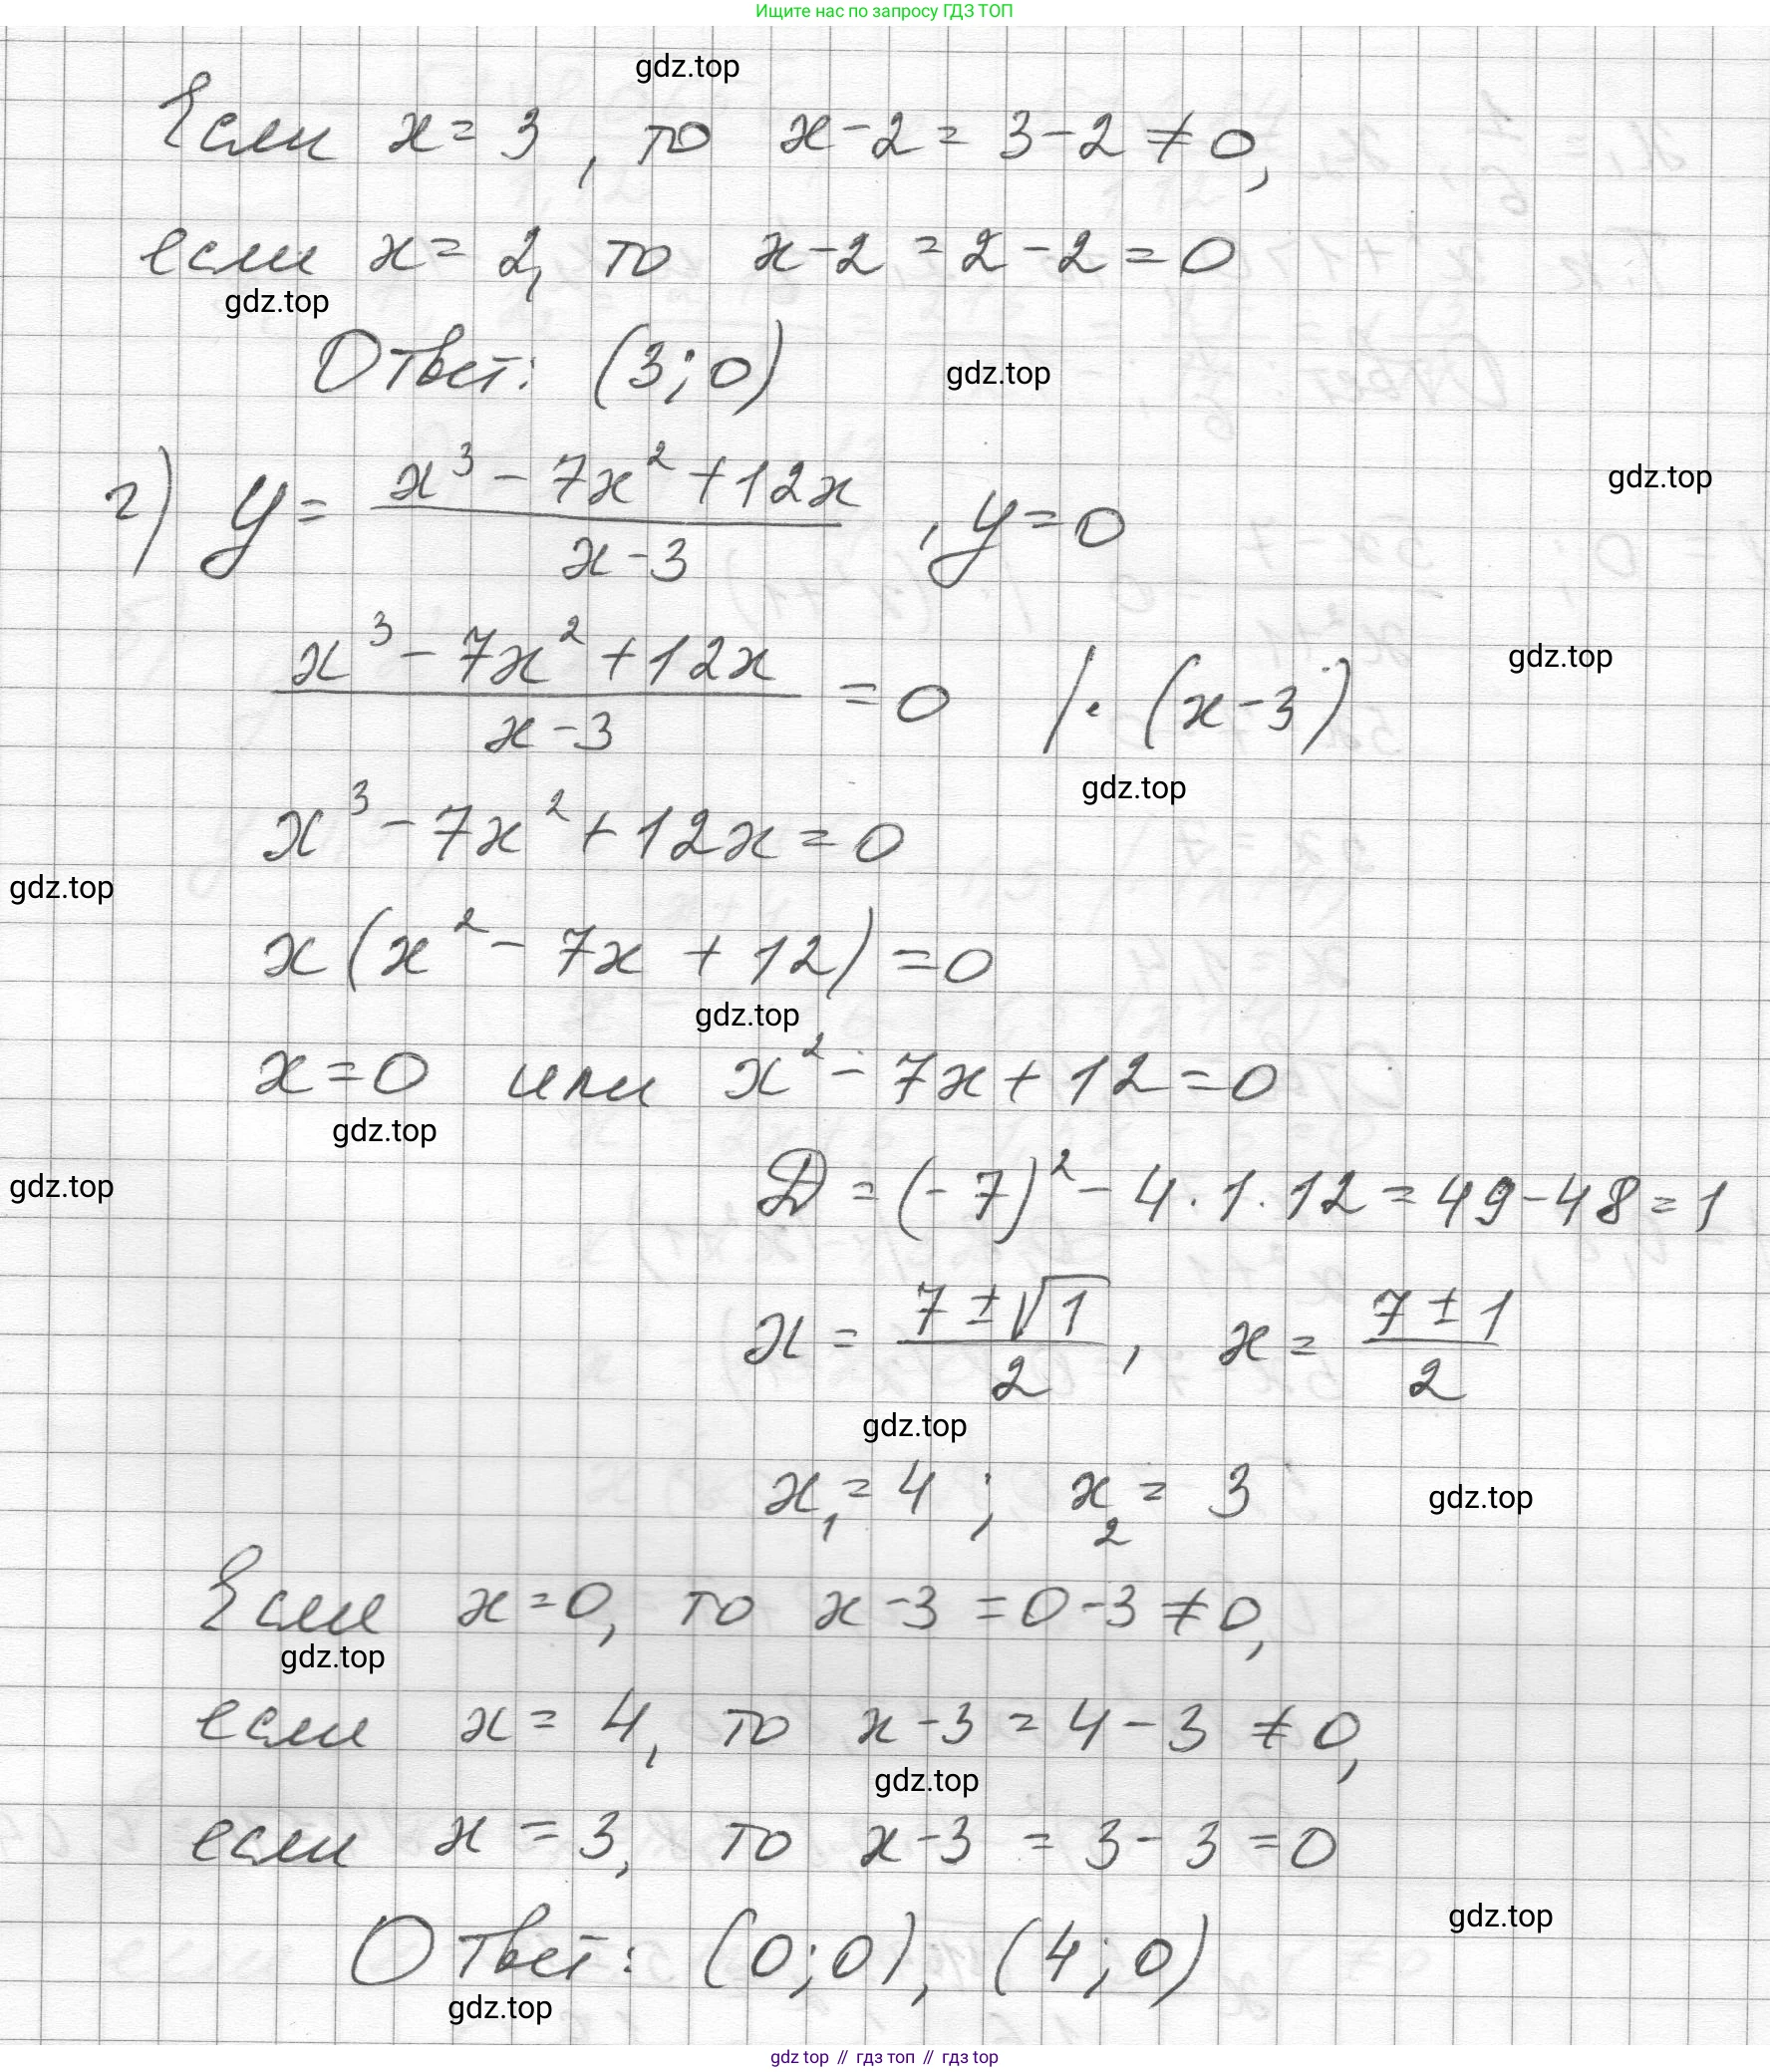 Ищите нас по запросу ГДЗ ТОП
gdz.top
Если x = 3, то x - 2 = 3 - 2 ≠ 0,
если x = 2, то x - 2 = 2 - 2 = 0
gdz.top
Ответ: (3; 0)
gdz.top
г) y = (x³ - 7x² + 12x)/(x - 3), y = 0
gdz.top
(x³ - 7x² + 12x)/(x - 3) = 0 /· (x - 3)
gdz.top
gdz.top
x³ - 7x² + 12x = 0
gdz.top
x(x² - 7x + 12) = 0
gdz.top
x = 0 или x² - 7x + 12 = 0
gdz.top
gdz.top
D = (-7)² - 4 · 1 · 12 = 49 - 48 = 1
x = (7 ± √1)/2, x = (7 ± 1)/2
gdz.top
x₁ = 4; x₂ = 3
gdz.top
Если x = 0, то x - 3 = 0 - 3 ≠ 0,
gdz.top
если x = 4, то x - 3 = 4 - 3 ≠ 0,
gdz.top
если x = 3, то x - 3 = 3 - 3 = 0
gdz.top
Ответ: (0; 0), (4; 0)
gdz.top
gdz top // гдз топ // гдз top